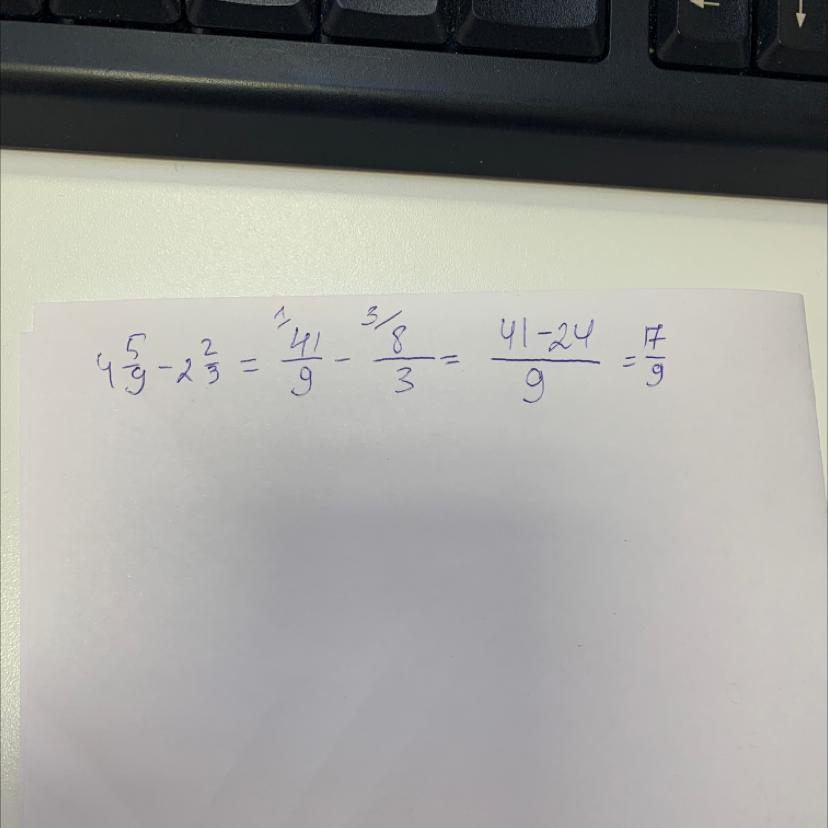 4 5/9 - 2 2/3 = 1/ 41/9 - 3/ 8/3 = (41-24)/9 = 17/9